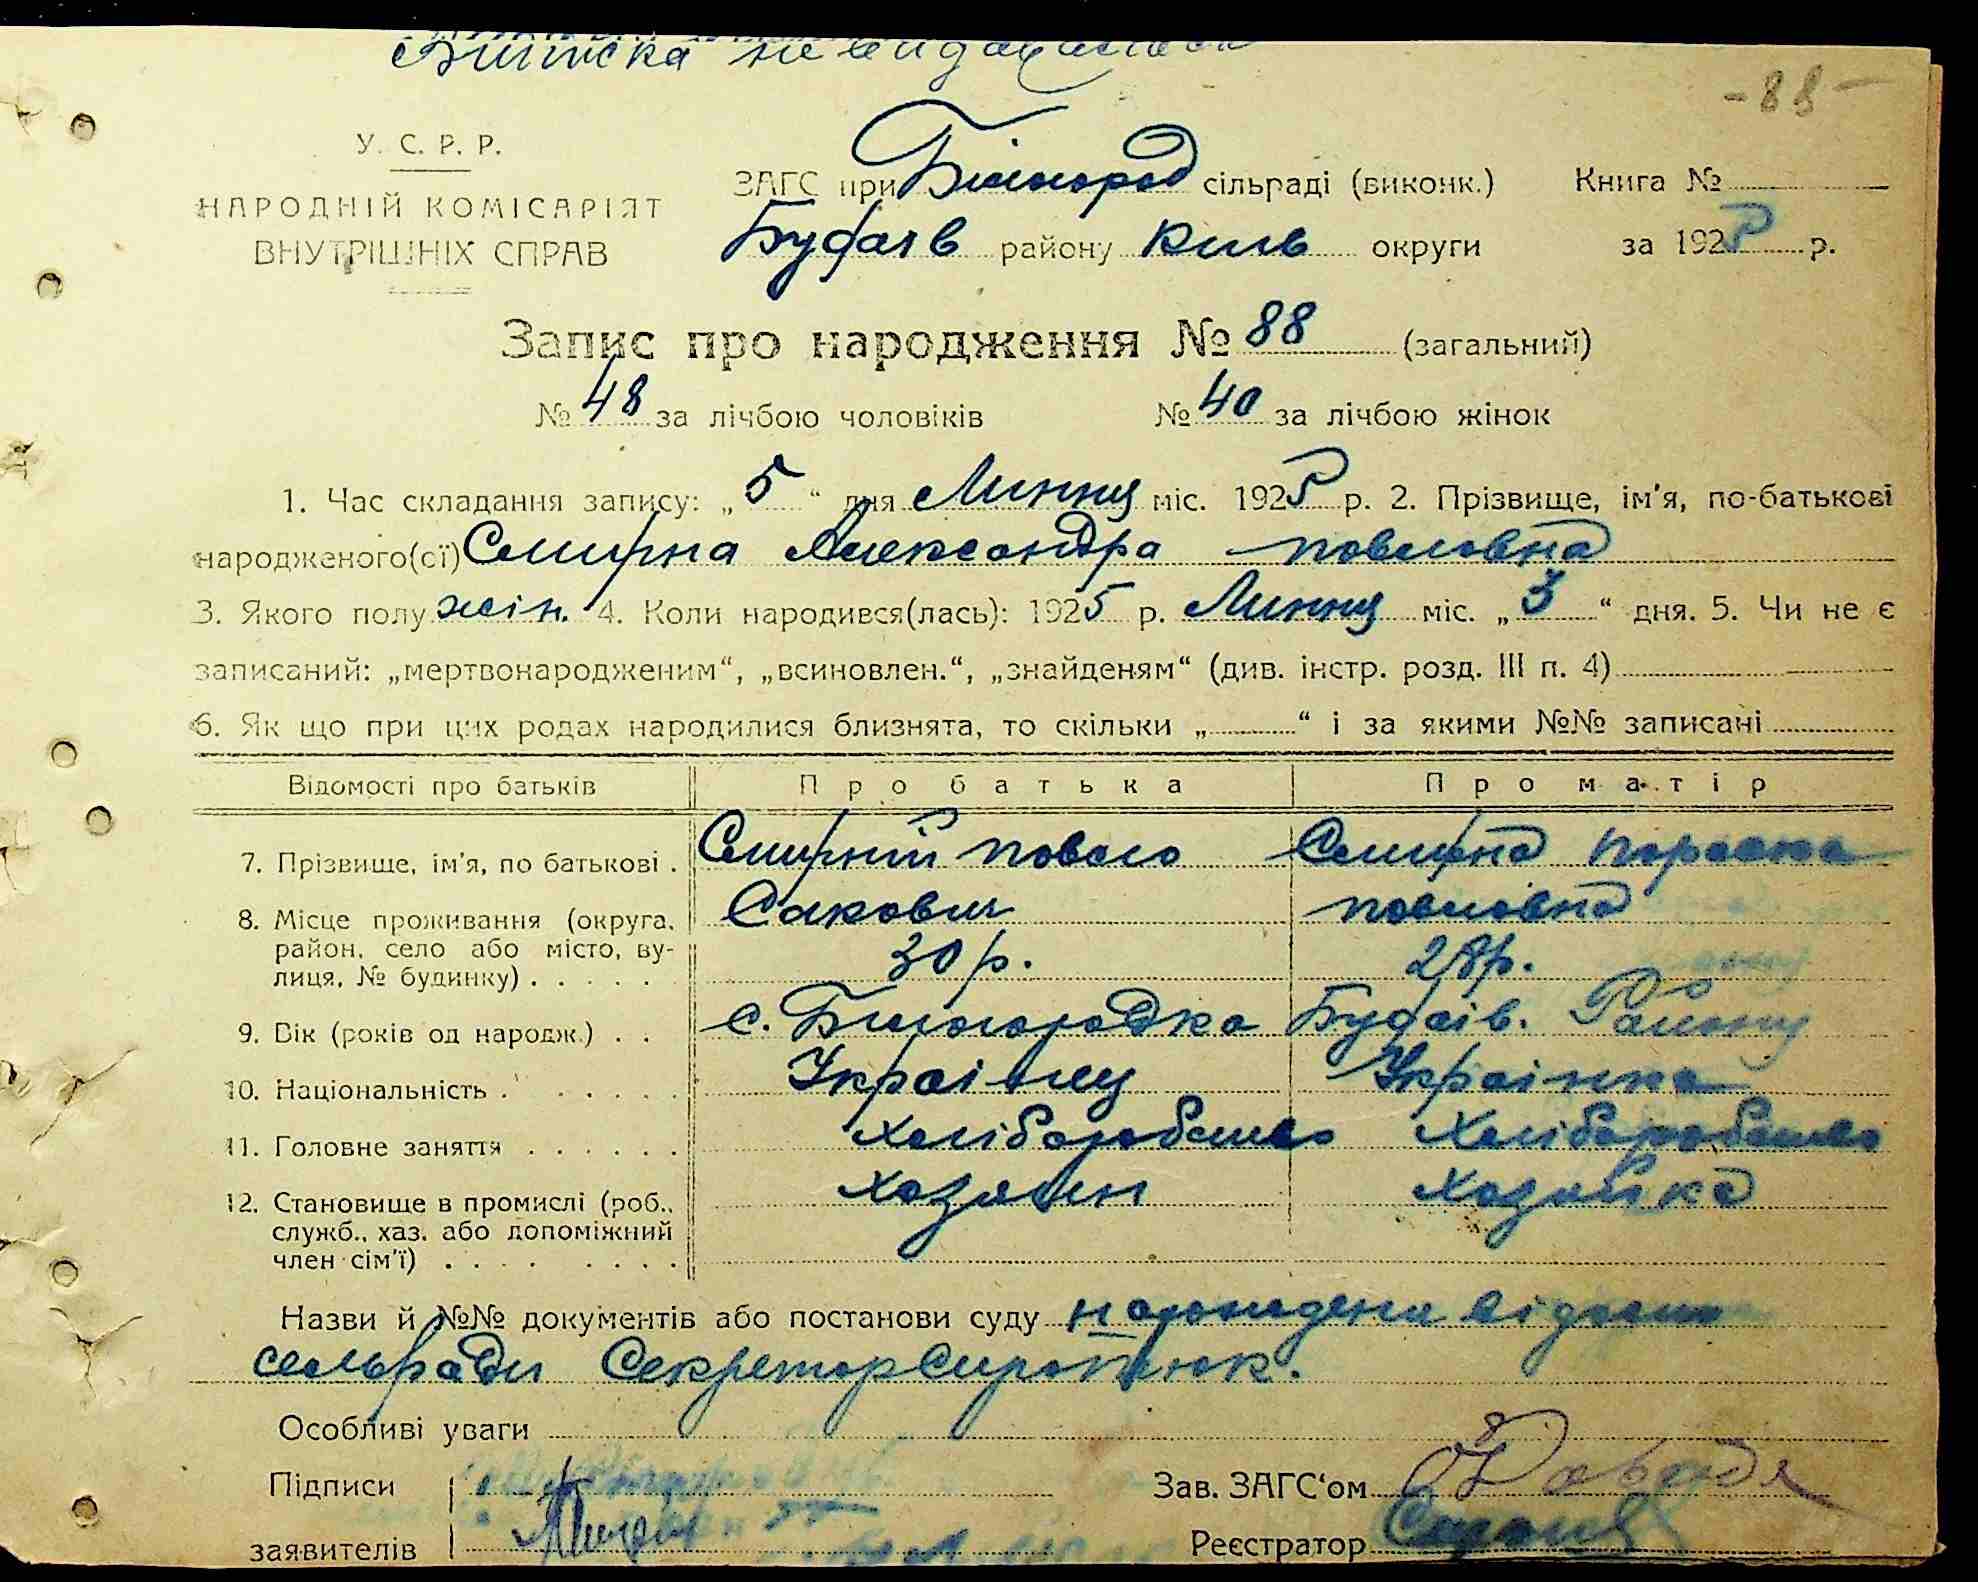 Виписка не видавалась
-88-
У. С. Р. Р.
НАРОДНІЙ КОМІСАРІЯТ
ВНУТРІШНІХ СПРАВ
ЗАГС при Білогород сільраді (виконк.) Книга №
Будаїв району Київ округи за 1925 р.
Запис про народження № 88 (загальний)
№ 48 за лічбою чоловіків № 40 за лічбою жінок
1. Час складання запису: „5“ дня Липня міс. 1925 р. 2. Прізвище, ім'я, по-батькові
народженого(сї) Смирна Александра Павловна
3. Якого полу жін. 4. Коли народився(лась): 1925 р. Липня міс. „3“ дня. 5. Чи не є
записаний: „мертвонародженим“, „всиновлен.“, „знайденям“ (див. інстр. розд. III п. 4)
6. Як що при цих родах народилися близнята, то скільки „ “ і за якими №№ записані
Відомості про батьків Про батька Про матір
7. Прізвище, ім'я, по батькові . Смирній Павло Смирна Параска
8. Місце проживання (округа, Сакович Павловна
район, село або місто, ву-
лиця, № будинку) . . . . . 30 р. 28 р.
9. Вік (років од народж.) . . с. Білогородка Будаїв. Району
10. Національність . . . . . . Українец Українка
11. Головне заняття . . . . . . Хліборобство Хліборобство
12. Становище в промислі (роб., Хазяин Хазяйка
служб., хаз. або допоміжний
член сім'ї) . . . . . . . .
Назви й №№ документів або постанови суду
сельради Секретар Сиротюк.
Особливі уваги
Підписи Зав. ЗАГС'ом
заявителів Реєстратор